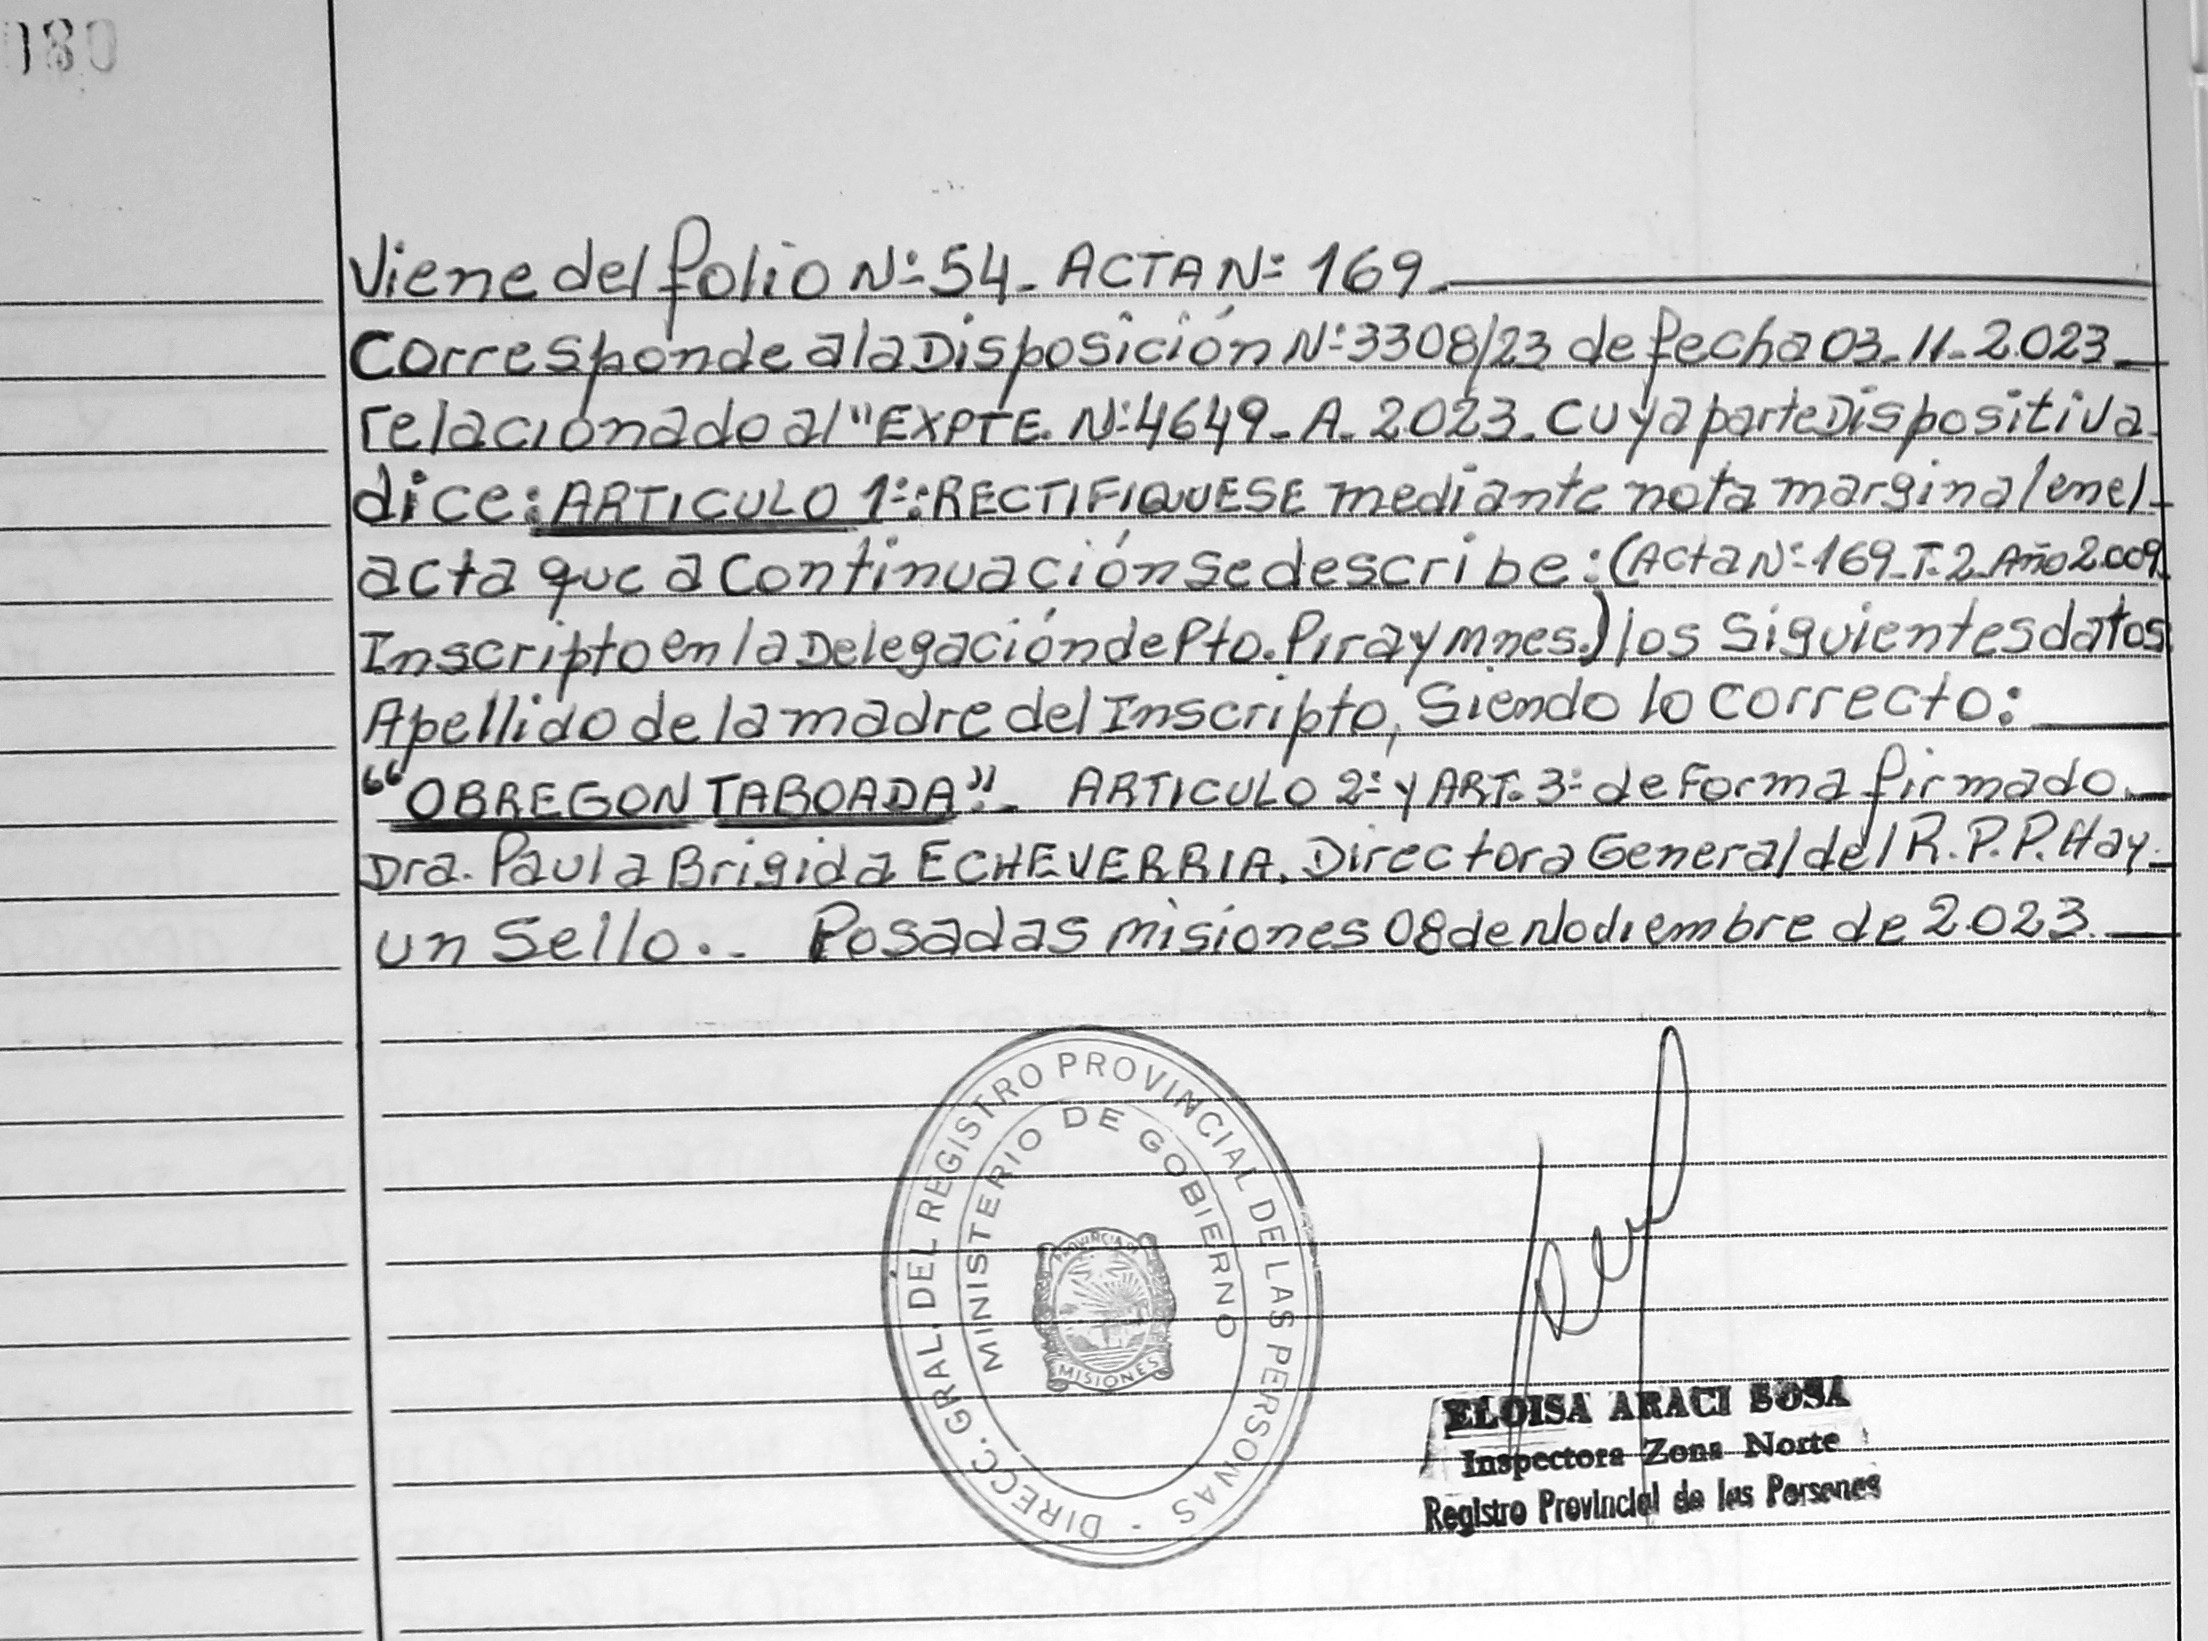 080
Viene del folio Nº 54- ACTA Nº 169.
Corresponde a la Disposición Nº 3308/23 de fecha 03-11-2023
relacionado al "EXPTE. Nº 4649-A-2023. Cuya parte Dispositiva
dice: ARTICULO 1º: RECTIFIQUESE mediante nota marginal en el
acta que a Continuación se describe: (Acta Nº 169-T-2-Año 2.009
Inscripto en la Delegación de Pto. Piray Mnes.) los siguientes datos
Apellido de la madre del Inscripto, Siendo lo correcto:
"OBREGON TABOADA". ARTICULO 2º y ART. 3º de forma firmado.
Dra. Paula Brigida ECHEVERRIA. Directora General del R.P.P. Hay
un Sello.- Posadas Misiones 08 de Nodiembre de 2.023.
DIRECC. GRAL. DEL REGISTRO PROVINCIAL DE LAS PERSONAS -
MINISTERIO DE GOBIERNO
PROVINCIA DE
MISIONES
ELOISA ARACI BOSA
Inspectora Zona Norte
Registro Provincial de las Personas